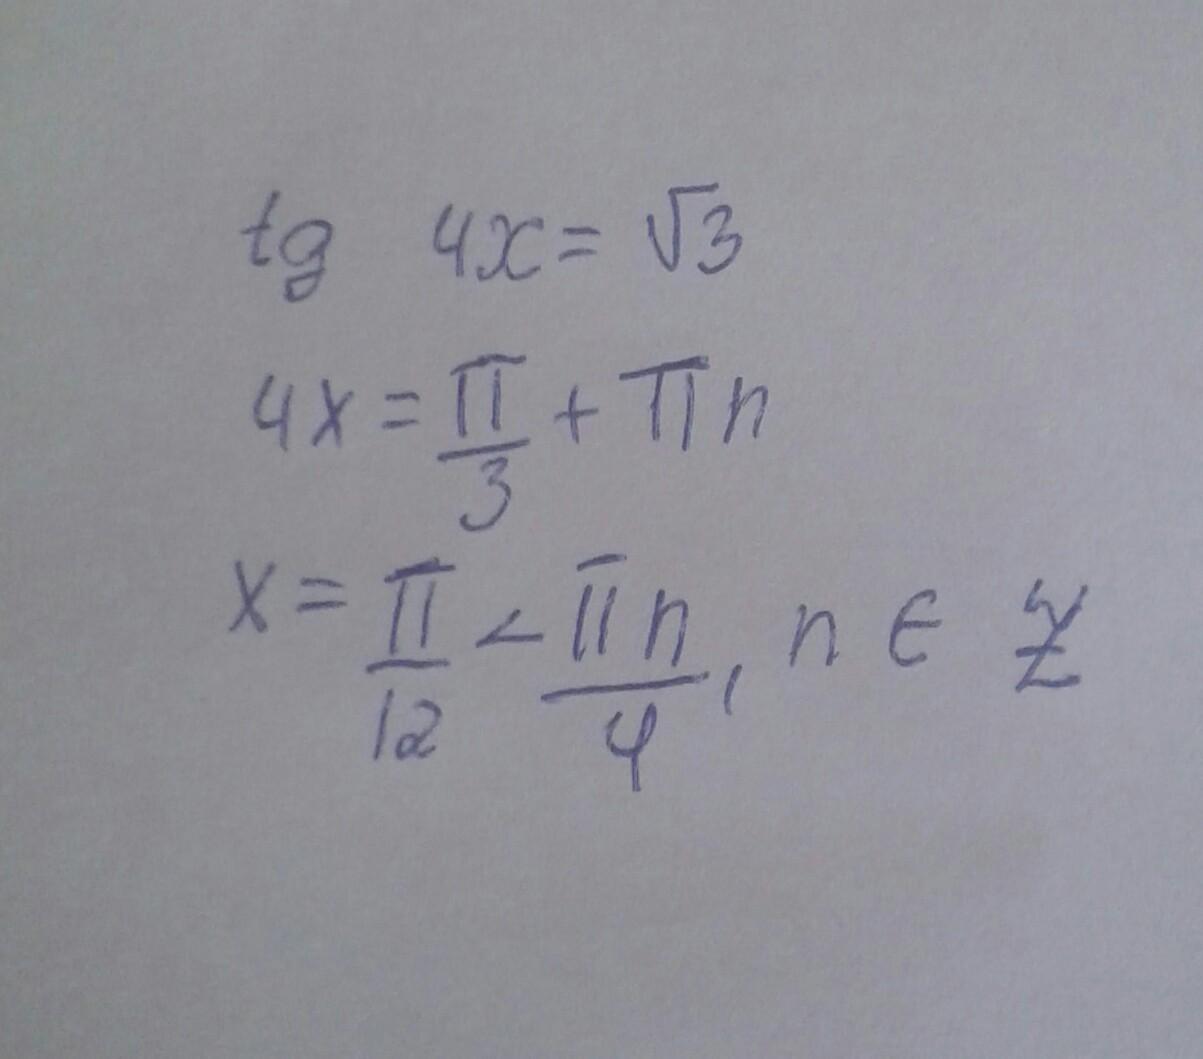 tg 4x = √3
4x = π/3 + πn
x = π/12 < πn/4, n ∈ Z